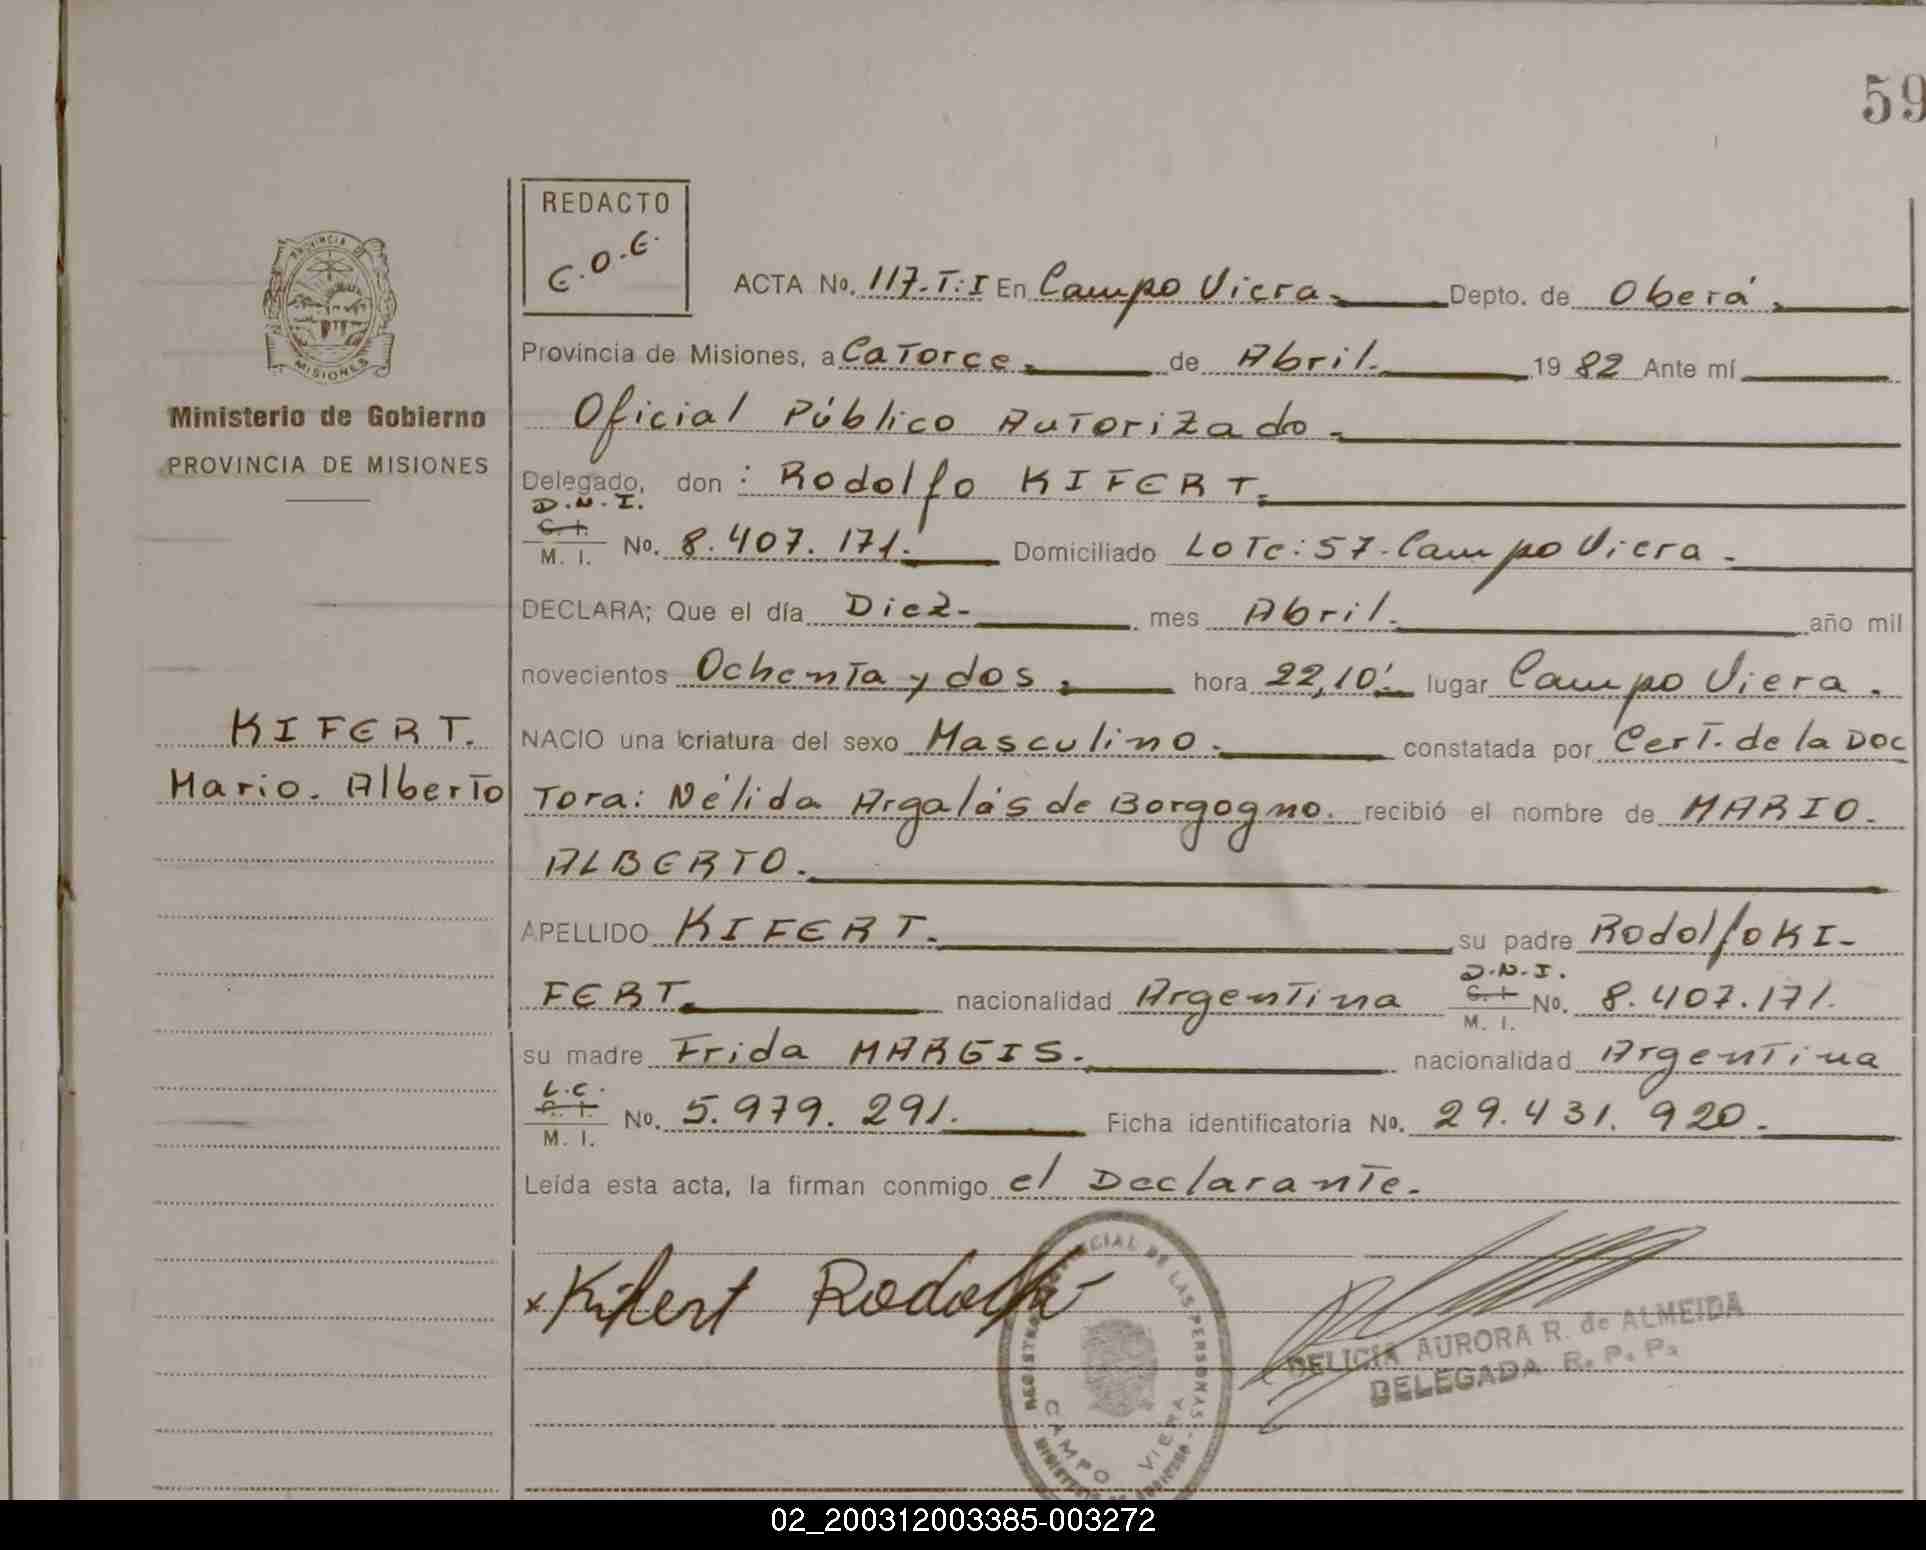 59
REDACTO
C.O.C.
ACTA No. 117.T:I En Campo Viera. Depto. de Oberá.
Provincia de Misiones, a Catorce. de Abril. 1982 Ante mí
Oficial Público Autorizado.
Delegado, don : Rodolfo KIFERT.
D.N.I.
C. I.
M. I. No. 8.407.171. Domiciliado Lote: 57. Campo Viera.
DECLARA; Que el día Diez. mes Abril. año mil
novecientos Ochenta y dos. hora 22,10' lugar Campo Viera.
NACIO una criatura del sexo Masculino. constatada por Cert. de la Doc
tora: Nélida Argalás de Borgogno. recibió el nombre de MARIO.
ALBERTO.
APELLIDO KIFERT. su padre Rodolfo KI-
FERT. nacionalidad Argentina D.N.I. C. I. M. I. No. 8.407.171.
su madre Frida MARGIS. nacionalidad Argentina
L.C.
C. I.
M. I. No. 5.979.291. Ficha identificatoria No. 29.431.920.
Leída esta acta, la firman conmigo el Declarante.
x Kifert Rodolfo
DELICIA AURORA R. de ALMEIDA
DELEGADA R. P. P.
CAMPO VIERA
PROVINCIA DE
MISIONES
Ministerio de Gobierno
PROVINCIA DE MISIONES
KIFERT.
Mario. Alberto
02_200312003385-003272